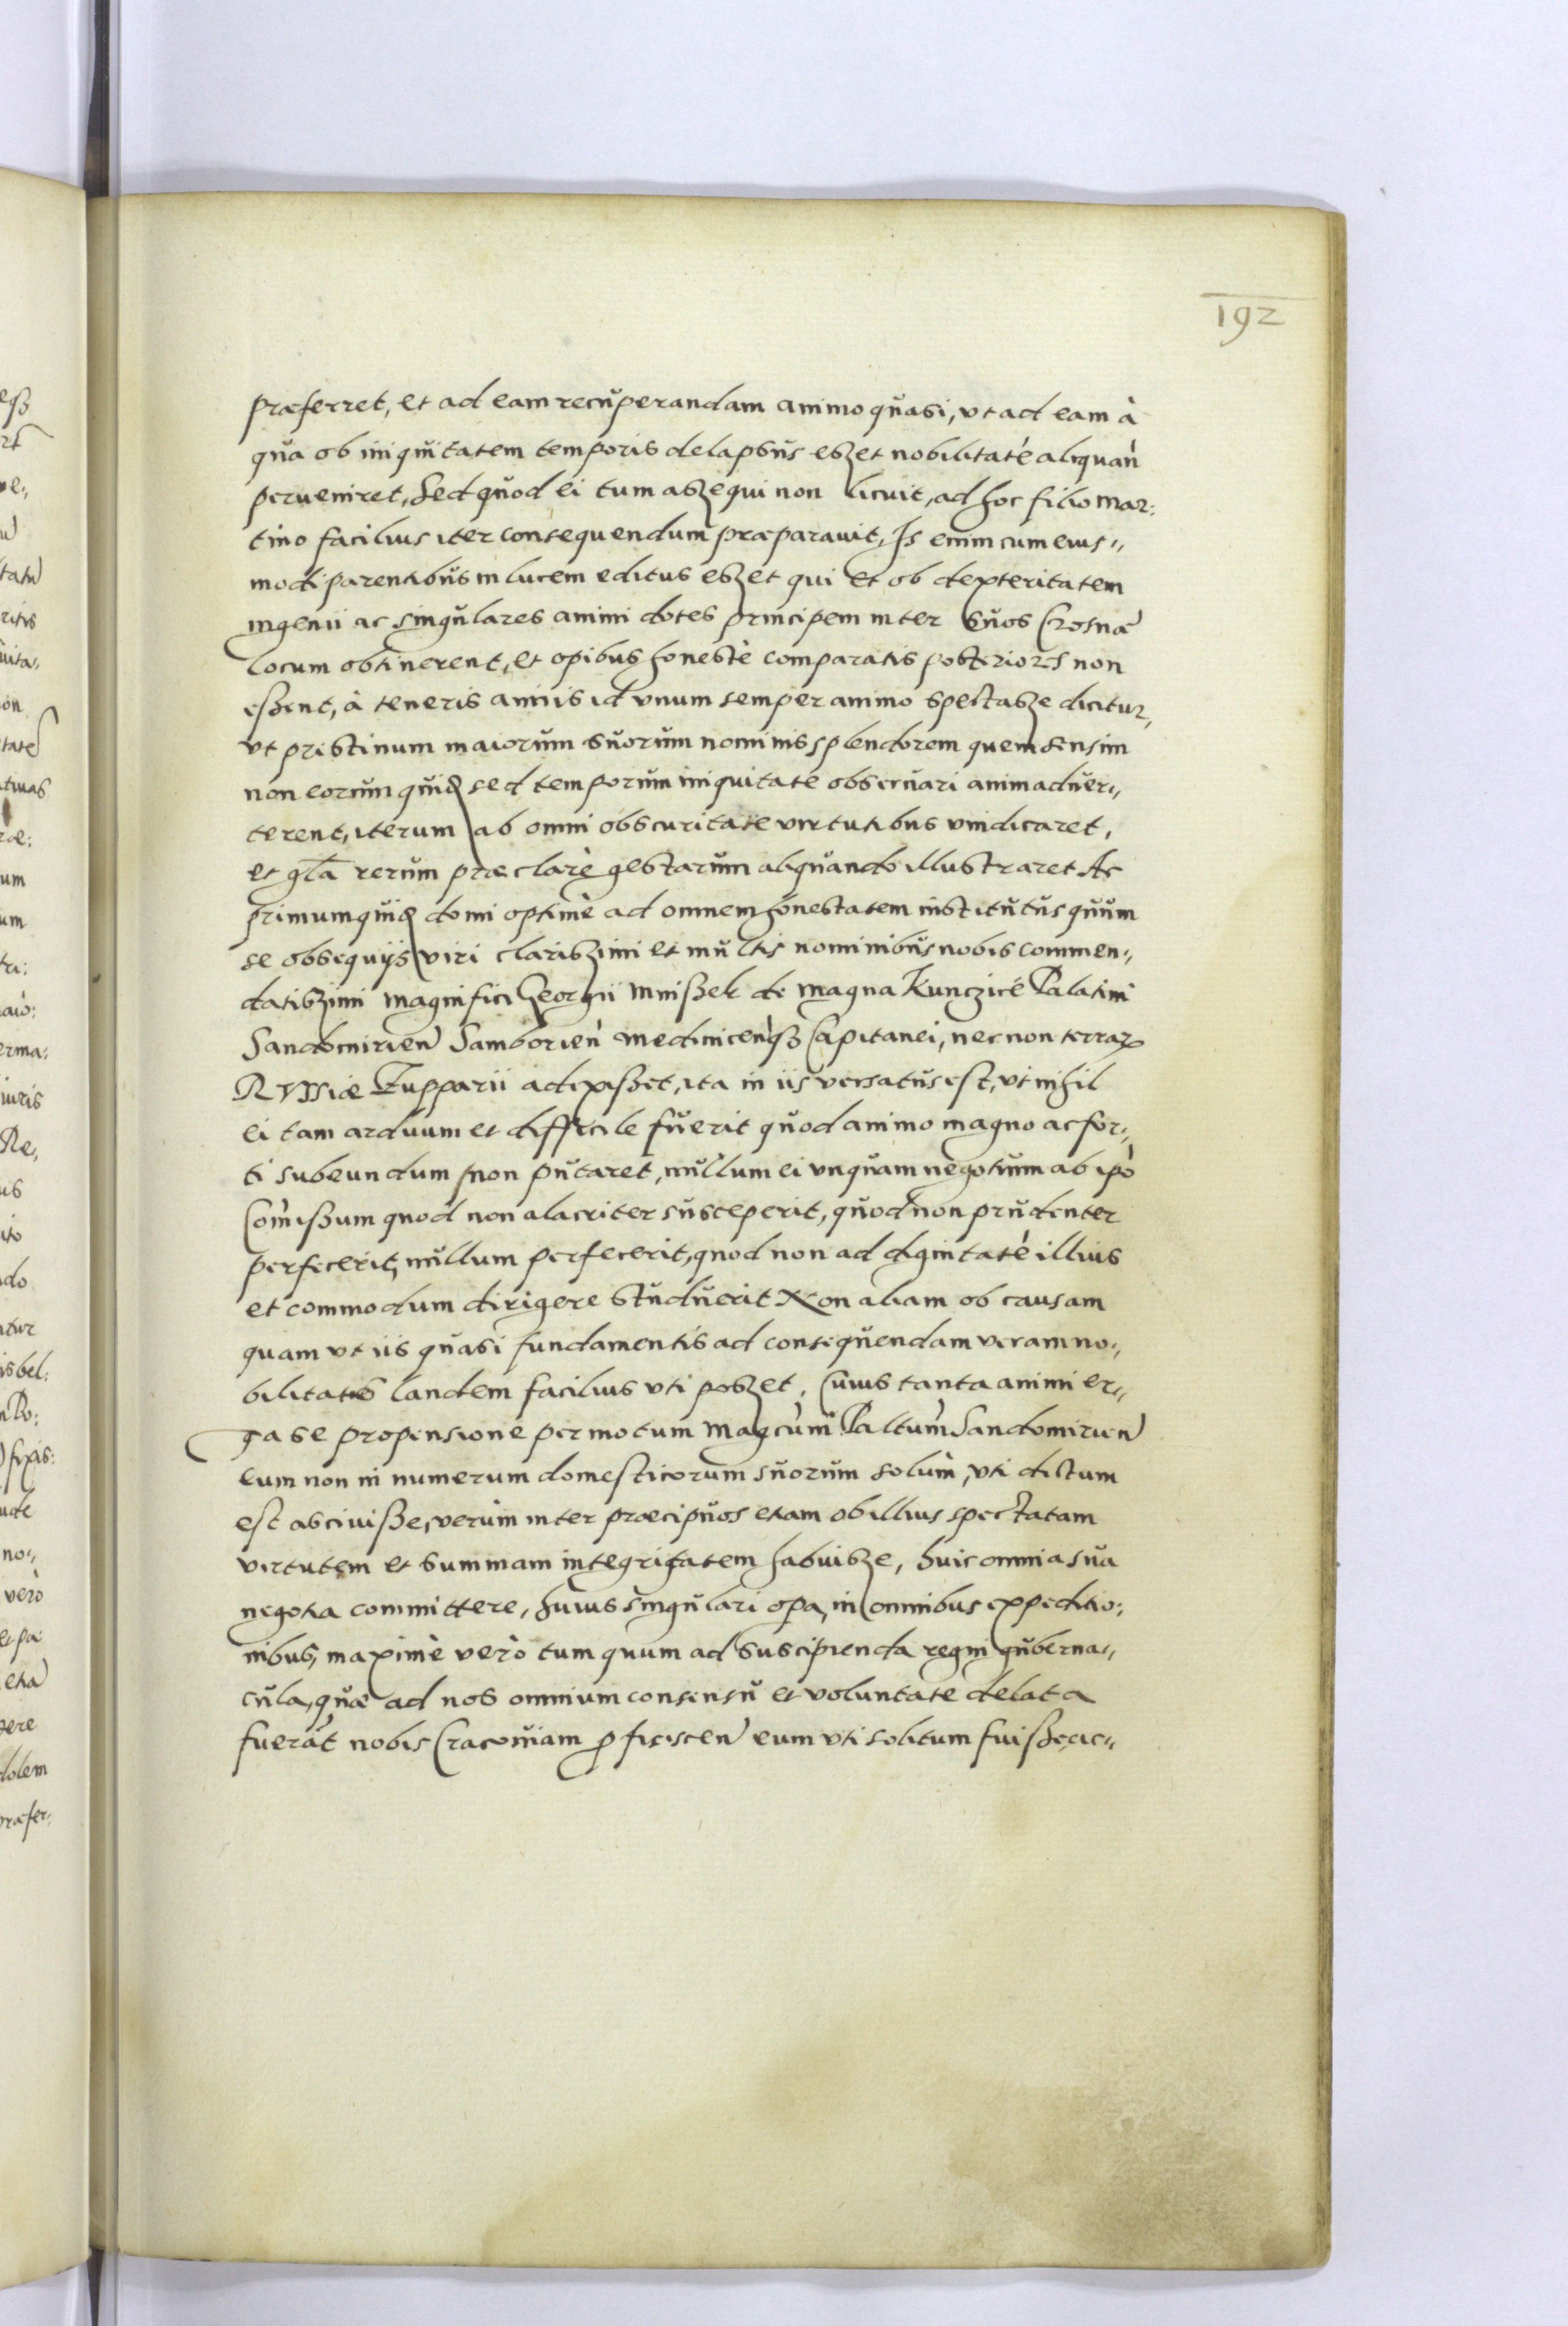 192
præferret, et ad eam recŭperandam animo qŭasi, vt ad eam à
qŭa ob iniqŭitatem temporis delapsŭs eszet nobilitatē aliquan̄
perueniret, Sed qŭod ei tum aszequi non licuit, ad hoc filio Mar:
tino facilius iter consequendum præparauit, Is enim cum eius„
modi parentibŭs in lucem editus eszet qui et ob dexteritatem
ingenii ac singŭlares animi dotes principem inter Sŭos Crosnæ
locum obtinerent, et opibus honestè comparatis posteriores non
eßent, à teneris annis id vnum semper animo spectasze dicitur,
vt pristinum maiorŭm sŭorŭm nominis splendorem quem sensim
non eorŭm quid sed temporŭm iniquitate obscruari animadŭer„
terent, iterum ab omni obscuritate virtutibus vindicaret,
et gl̄a rerŭm præclarè gestarŭm aliqŭando illustraret Ac
primum quid domi optimè ad omnem honestatem institŭtŭs qŭum
se obsequijs viri clariszimi et mŭltis nominibŭs nobis commen„
datiszimi Magnifici Georgii Mnißek de Magna Kunczicē Palatini
Sandomirien̄ Samborien̄ Medinicen̄q3 Capitanei, nec non terrar.
Rvssiæ Zupparii adixißet, ita in iis versatŭs est, vt nihil
ei tam arduum et difficile fŭerit qŭod animo magno ac for„
ti subeundum non pŭtaret, nŭllum ei vnqŭam negotium ab ip̄o
Com̄ißum quod non alacriter sŭsceperit, qŭod non prŭdenter
perfecerit, nŭllum perfecerit, quod non ad dignitatē illius
et commodum dirigere stŭdŭerit Non aliam ob causam
quam vt iis qŭasi fundamentis ad conseqŭendam veram no„
bilitatē tandem facilius vti poszet. Cuius tanta animi er„
ga se propensione permotum Mag̅cŭm Pal̄tum Sandomirien̄
eum non in numerum domesticorum sŭorŭm solùm, vti dictum
est asciuiße, verùm inter præcipŭos etiam ob illius spectatam
virtutem et summam integritatem habuisze, huic omnia sŭa
negotia committere, huius singŭlari op̄a, in omnibus expeditio:
nibus, maximè verò tum quum ad suscipienda regni gŭberna„
cŭla, qŭæ ad nos omnium consensŭ et voluntate delata
fuerāt nobis Cracouiam ꝓficiscen̄ eum vti solitum fuiße, ac„